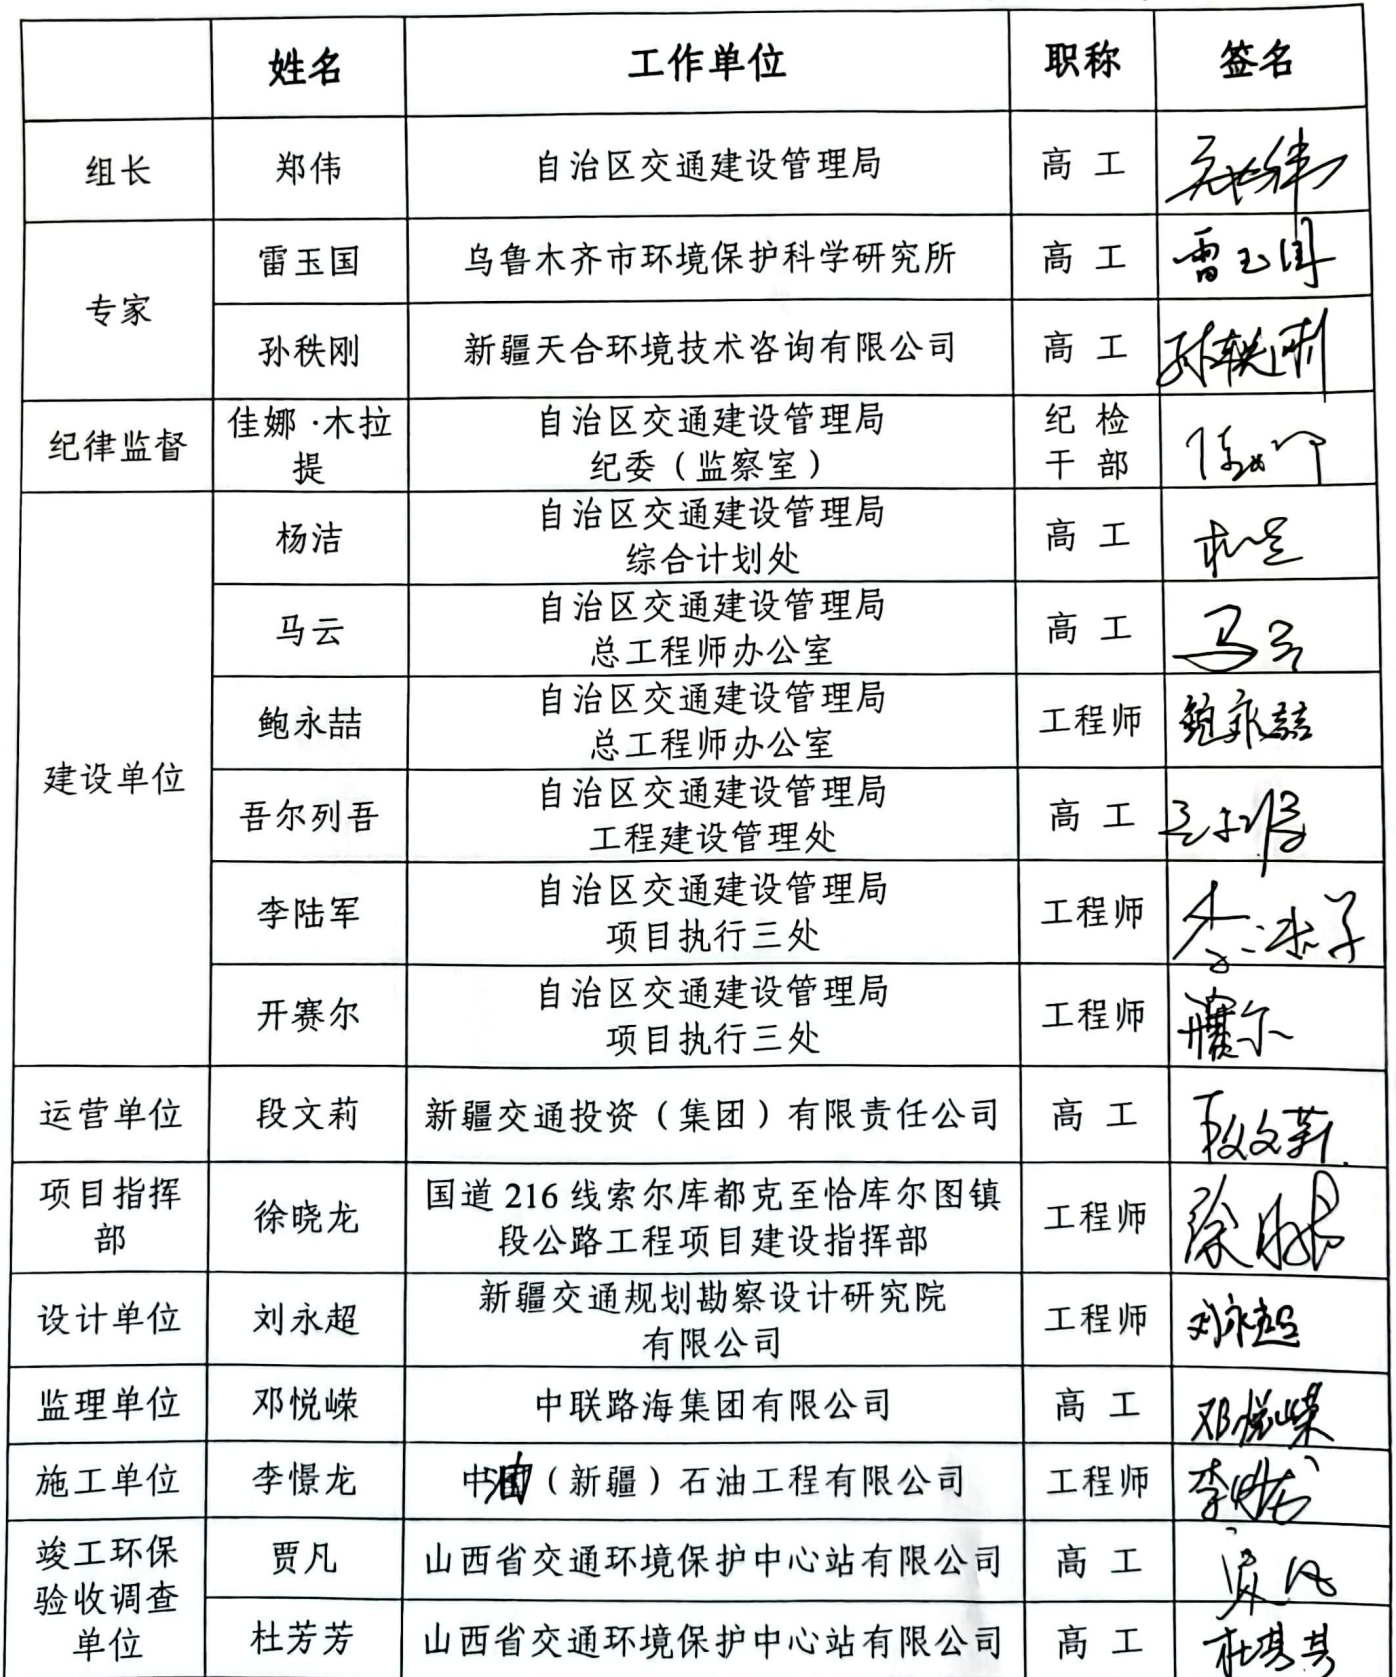 姓名 工作单位 职称 签名
组长 郑伟 自治区交通建设管理局 高 工
专家
雷玉国 乌鲁木齐市环境保护科学研究所 高 工 雷玉国
孙秩刚 新疆天合环境技术咨询有限公司 高 工 孙秩刚
纪律监督
佳娜·木拉
提
自治区交通建设管理局
纪委（监察室）
纪 检
干 部
建设单位
杨洁
自治区交通建设管理局
综合计划处
高 工
马云
自治区交通建设管理局
总工程师办公室
高 工 马云
鲍永喆
自治区交通建设管理局
总工程师办公室
工程师 鲍永喆
吾尔列吾
自治区交通建设管理局
工程建设管理处
高 工
李陆军
自治区交通建设管理局
项目执行三处
工程师
开赛尔
自治区交通建设管理局
项目执行三处
工程师 开赛尔
运营单位 段文莉 新疆交通投资（集团）有限责任公司 高 工 段文莉
项目指挥
部
徐晓龙
国道 216 线索尔库都克至恰库尔图镇
段公路工程项目建设指挥部
工程师 徐晓龙
设计单位 刘永超
新疆交通规划勘察设计研究院
有限公司
工程师 刘永超
监理单位 邓悦嵘 中联路海集团有限公司 高 工 邓悦嵘
施工单位 李憬龙 中油（新疆）石油工程有限公司 工程师
竣工环保
验收调查
单位
贾凡 山西省交通环境保护中心站有限公司 高 工 贾凡
杜芳芳 山西省交通环境保护中心站有限公司 高 工 杜芳芳